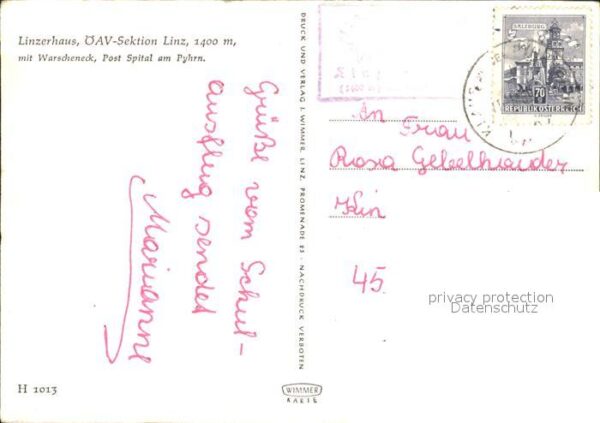 Linzerhaus, ÖAV-Sektion Linz, 1400 m,
mit Warscheneck, Post Spital am Pyhrn.
Grüße vom Schul-
ausflug sendet
Marianne
H 1013
DRUCK UND VERLAG J. WIMMER, LINZ, PROMENADE 23 - NACHDRUCK VERBOTEN
WIMMER
KARTE
SALZBURG
70
REPUBLIK ÖSTERREICH
An Frau
Rosa Gebelhaider
45
privacy protection
Datenschutz